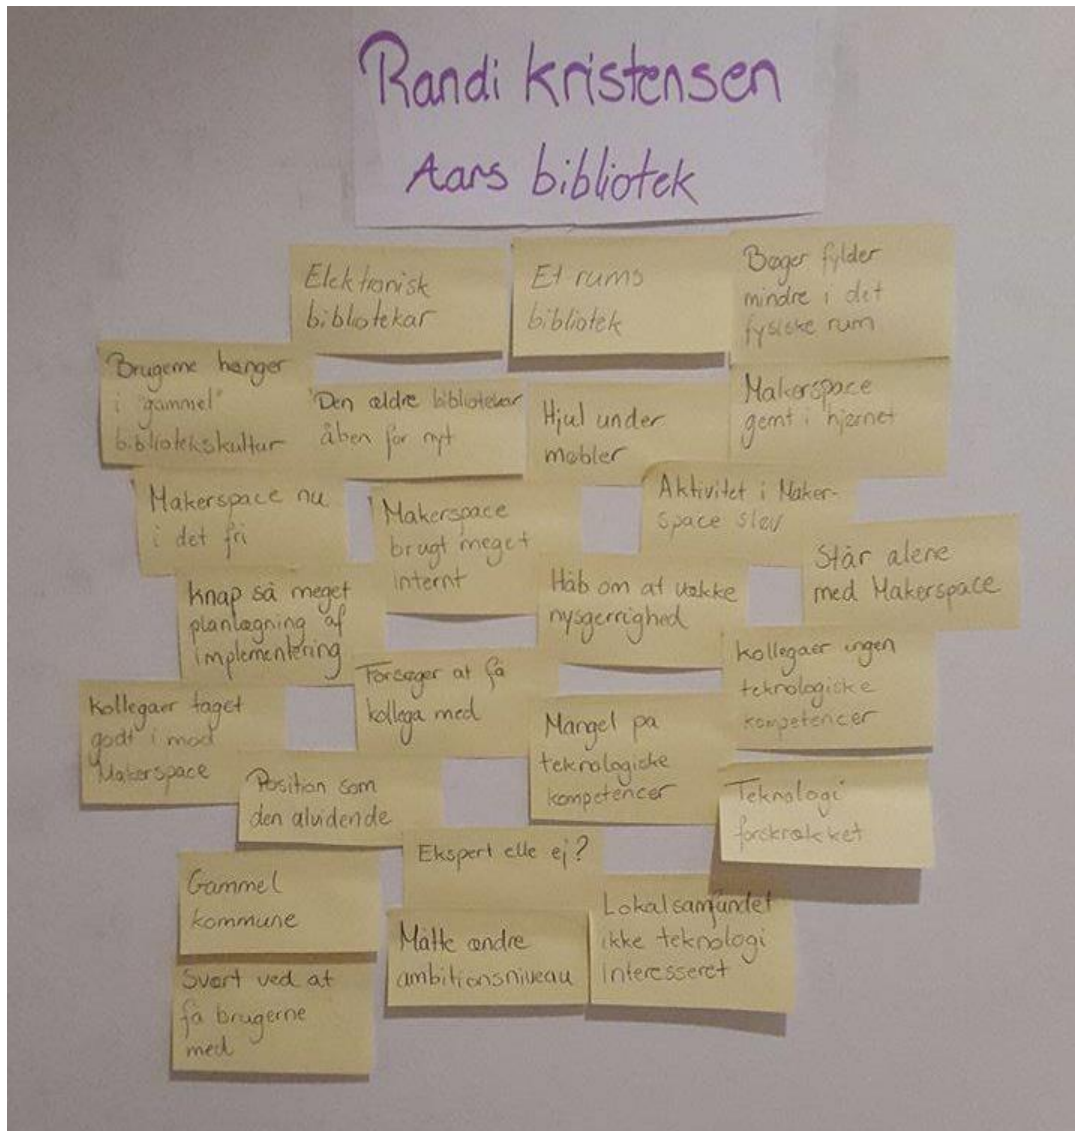 Randi Kristensen
Aars bibliotek
Elektronisk
bibliotekar
Et rums
bibliotek
Bøger fylder
mindre i det
fysiske rum
Brugerne hænger
i "gammel"
bibliotekskultur
"Den ældre bibliotekar
åben for nyt
Hjul under
møbler
Makerspace
gemt i hjørnet
Makerspace nu
i det fri
Makerspace
brugt meget
internt
Aktivitet i Maker-
space sløj
Står alene
med Makerspace
Knap så meget
planlægning af
implementering
Håb om at vække
nysgerrighed
Forsøger at få
kollega med
Kollegaer ingen
teknologiske
kompetencer
Kollegaer taget
godt i mod
Makerspace
Position som
den alvidende
Mangel på
teknologiske
kompetencer
Teknologi
forskrækket
Ekspert elle ej?
Gammel
kommune
Måtte ændre
ambitionsniveau
Lokalsamfundet
ikke teknologi
interesseret
Svært ved at
få brugerne
med